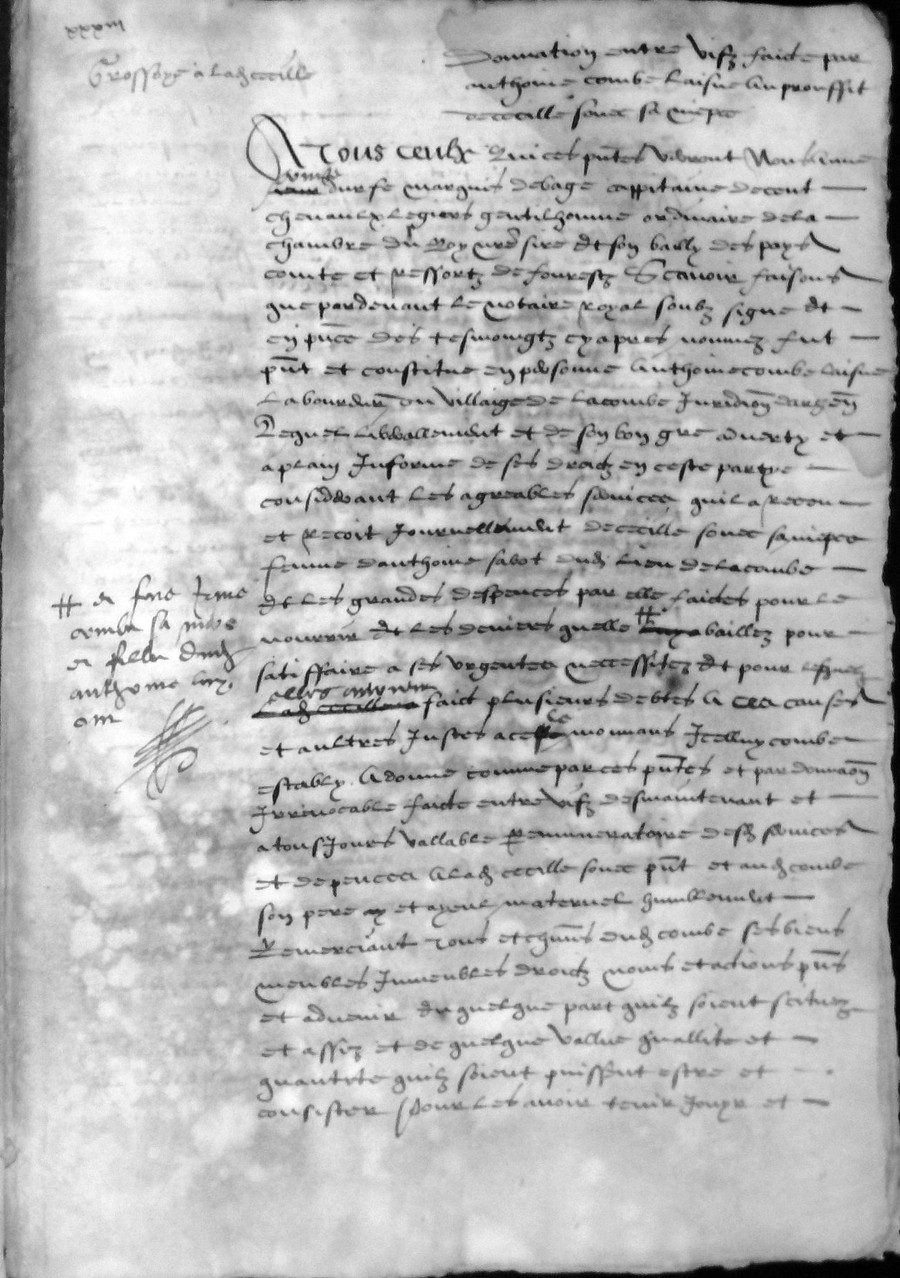 xxxiii
Grossoyé a lad cecille
Donnation entre vifz faicte par
anthoine combe laisne au prouffit
de cecille souec sa niepce
A Tous ceulx Qui ces pntes verront Nous
durfe marquis de bagé cappitaine de cent
chevaulx legiers gentilhomme ordinaire de la
chambre du Roy nre sire et son bailly des pays
comte et ressortz de fourestz Scavoir faisons
que pardevant le notaire royal soubz signe et
en pnce des tesmoingtz cy apres nommez fut
pnt et constitue en personne Anthoine combe laisne
laboureur du villaige de lacombe Juridion dargen
Lequel liberallement et de son bon gre adverty et
a plain Informe de ses droictz en ceste partye
considerant les agreables services quil a receu
et recoit Journellement de cecille souec sa niepce
femme danthoine sabot dud lieu de lacombe
et les grandes despences par elle faictes pour le
nourrir et les deniers quelle # baillez pour
satisffaire a ses urgentes necessitez et pour lesquelz
faict plusieurs debtes A ces causes
et aultres Justes a ce monnans Icelluy combe
estably A donne comme par ces pntes et par donnaon
Irrevocable faicte entre vifz desmaintenant et
a tousjours vallable Remuneratoire desd services
et depences A lad cecille souec pnt et aud combe
son pere et ayeul maternel humblement
Remerciant Tous et chuns dud combe ses biens
meubles Immeubles droictz noms et actions pns
et advenir de quelque part quilz soient scituez
et assiz et de quelque vallue quallite et
quantite quilz soient puissent estre et
consister Pour les avoir tenir Jouyr et
# a
combe sa
et fille dud
anthoine